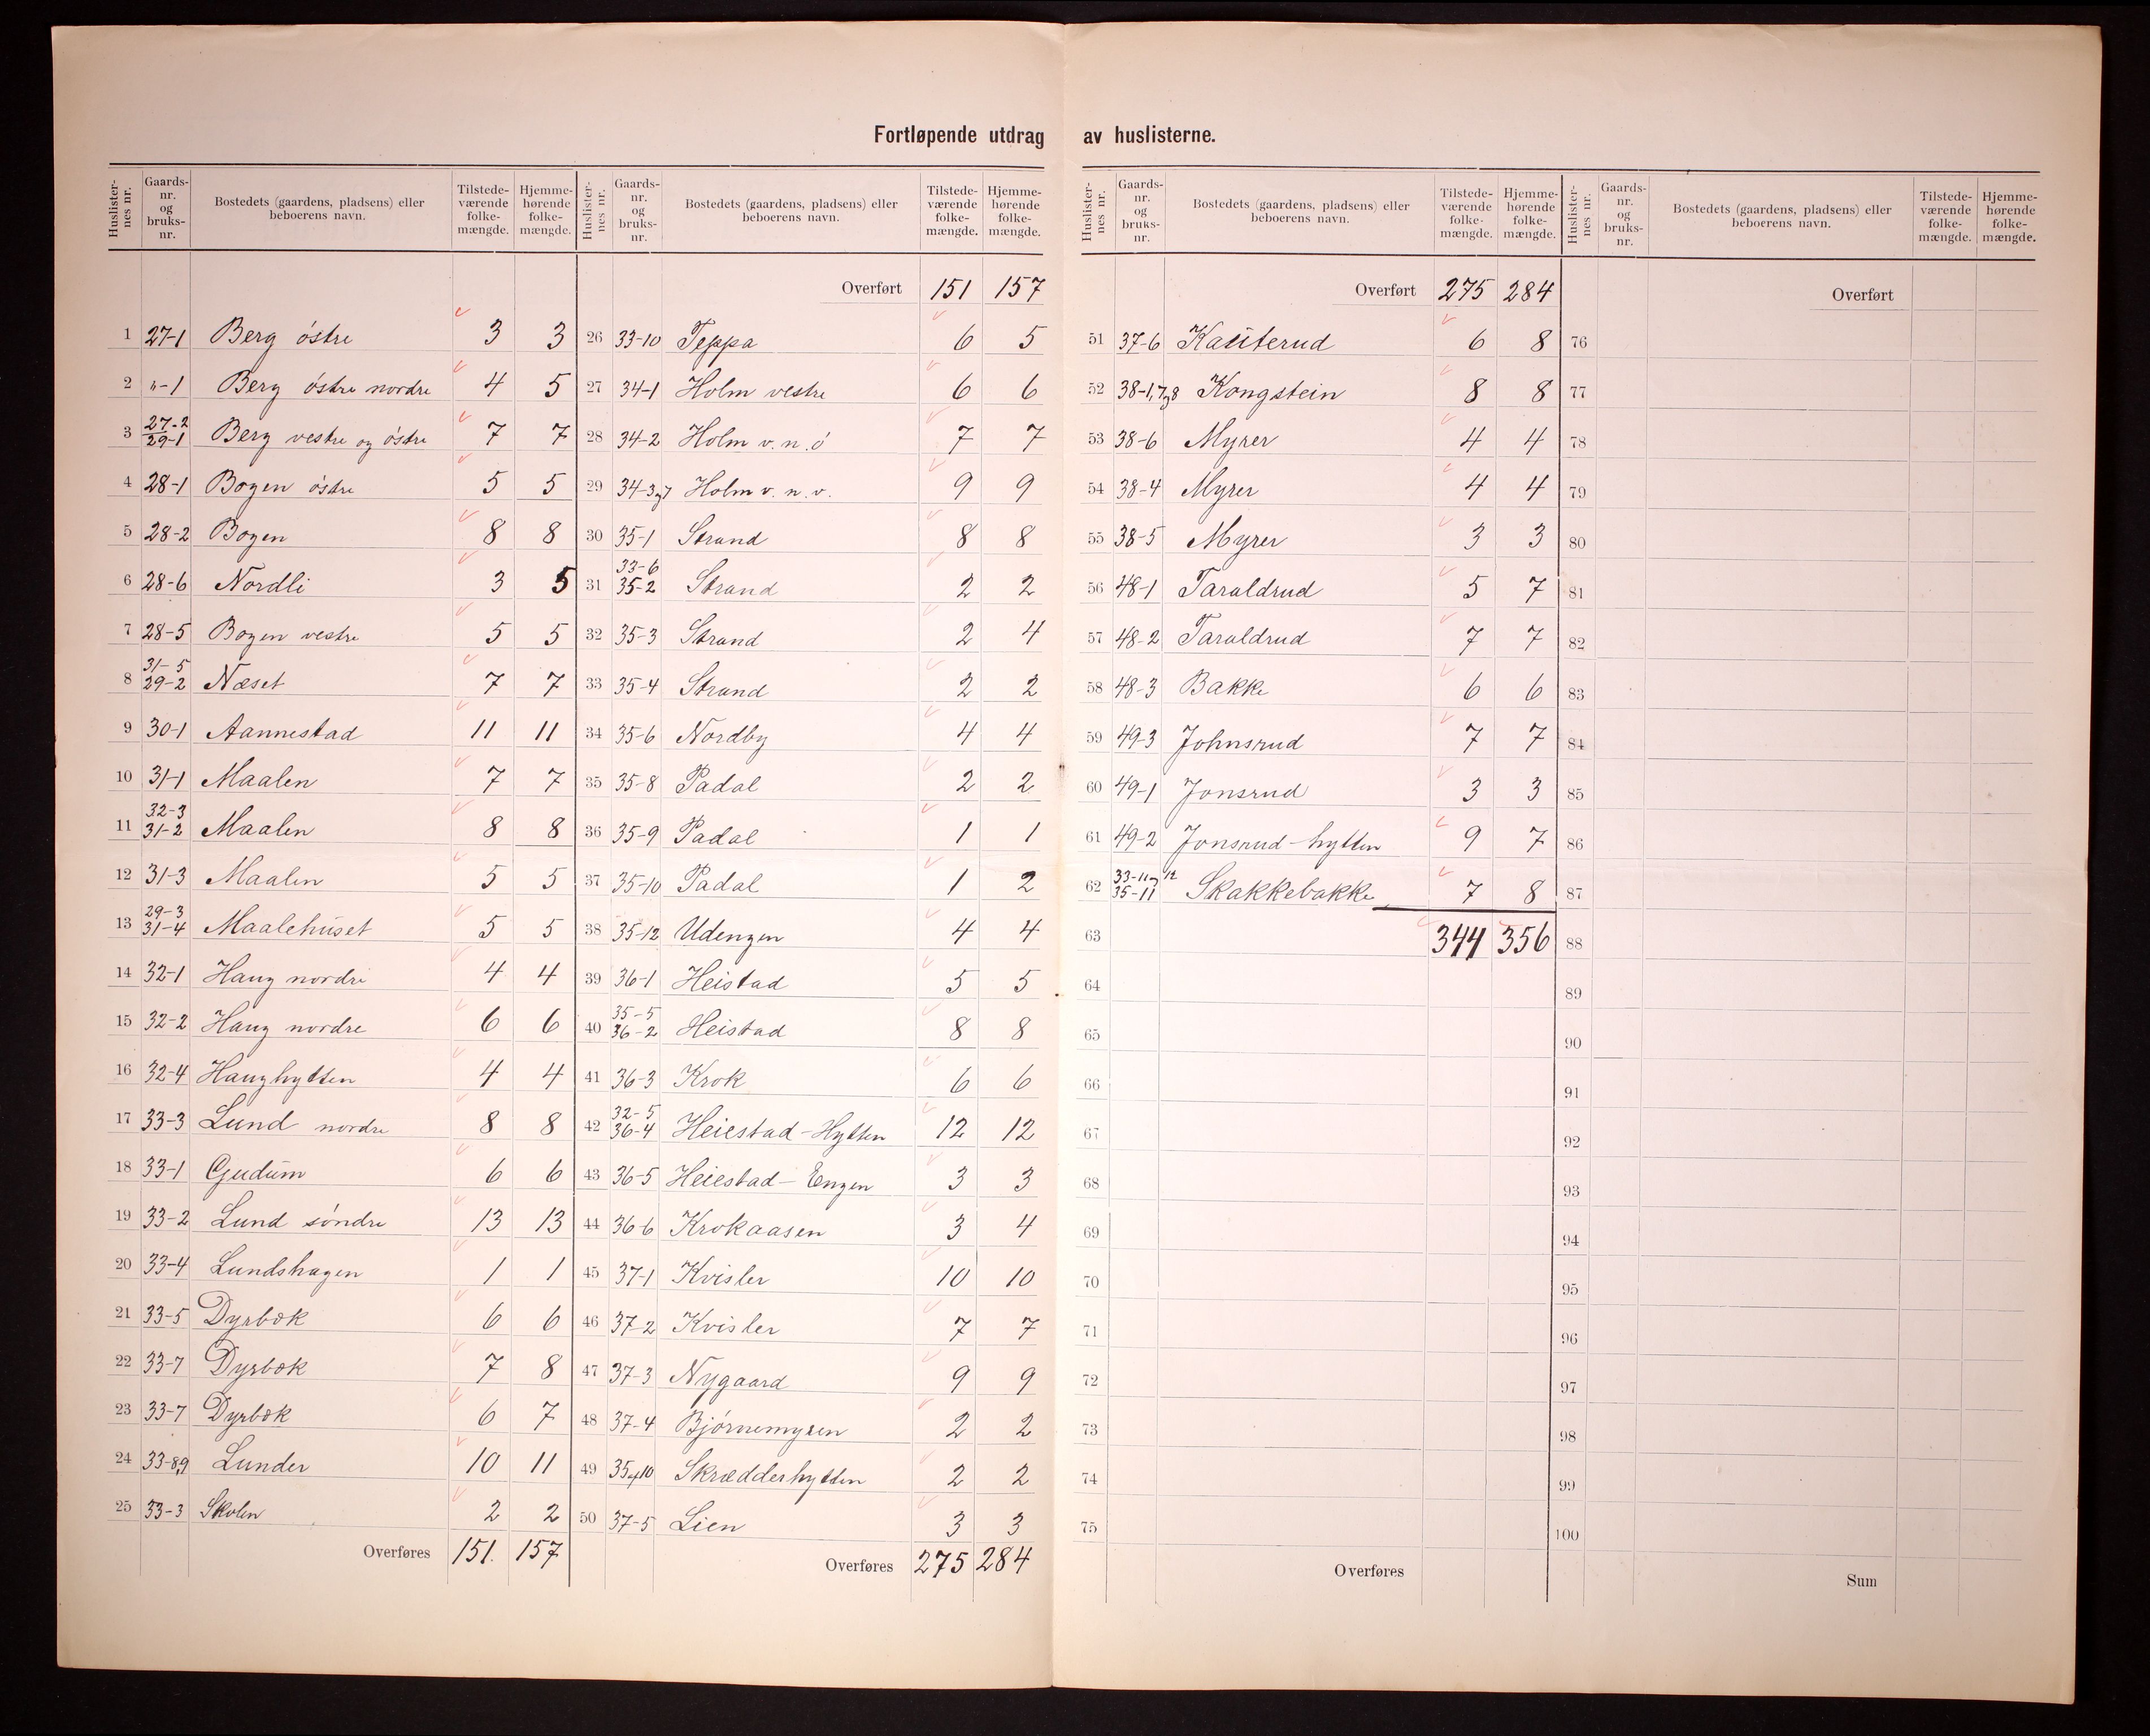 Fortløpende utdrag av huslisterne.
Huslister-nes nr. Gaards-nr. og bruks-nr. Bostedets (gaardens, pladsens) eller beboerens navn. Tilstede-værende folke-mængde. Hjemme-hørende folke-mængde.
1 27-1 Berg østre 3 3
2 "-1 Berg østre nordre 4 5
3 27-2 29-1 Berg vestre og østre 7 7
4 28-1 Bogen østre 5 5
5 28-2 Bogen 8 8
6 28-6 Nordli 3 5
7 28-5 Bogen vestre 5 5
8 31-5 29-2 Næset 7 7
9 30-1 Aannestad 11 11
10 31-1 Maalen 7 7
11 32-3 31-2 Maalen 8 8
12 31-3 Maalen 5 5
13 29-3 31-4 Maalehuset 5 5
14 32-1 Haug nordre 4 4
15 32-2 Haug nordre 6 6
16 32-4 Haughytten 4 4
17 33-3 Lund nordre 8 8
18 33-1 Gudum 6 6
19 33-2 Lund søndre 13 13
20 33-4 Lundshagen 1 1
21 33-5 Dyrbæk 6 6
22 33-7 Dyrbæk 7 8
23 33-7 Dyrbæk 6 7
24 33-8,9 Lunder 10 11
25 33-3 Skolen 2 2
Overføres 151. 157
Huslister-nes nr. Gaards-nr. og bruks-nr. Bostedets (gaardens, pladsens) eller beboerens navn. Tilstede-værende folke-mængde. Hjemme-hørende folke-mængde.
Overført 151 157
26 33-10 Teppa 6 5
27 34-1 Holm vestre 6 6
28 34-2 Holm v. n. ø 7 7
29 34-3og7 Holm v. n. v. 9 9
30 35-1 Strand 8 8
31 33-6 35-2 Strand 2 2
32 35-3 Strand 2 4
33 35-4 Strand 2 2
34 35-6 Nordby 4 4
35 35-8 Padal 2 2
36 35-9 Padal 1 1
37 35-10 Padal 1 2
38 35-12 Udengen 4 4
39 36-1 Heistad 5 5
40 35-5 36-2 Heistad 8 8
41 36-3 Krok 6 6
42 32-5 36-4 Heiestad-Hytten 12 12
43 36-5 Heiestad-Engen 3 3
44 36-6 Krokaasen 3 4
45 37-1 Kvisler 10 10
46 37-2 Kvisler 7 7
47 37-3 Nygaard 9 9
48 37-4 Bjørnemyren 2 2
49 Skrædderhytten 2 2
50 37-5 Lien 3 3
Overføres 275 284
Huslister-nes nr. Gaards-nr. og bruks-nr. Bostedets (gaardens, pladsens) eller beboerens navn. Tilstede-værende folke-mængde. Hjemme-hørende folke-mængde.
Overført 275 284
51 37-6 Kauterud 6 8
52 38-1,7og8 Kongstein 8 8
53 38-6 Myrer 4 4
54 38-4 Myrer 4 4
55 38-5 Myrer 3 3
56 48-1 Taraldrud 5 7
57 48-2 Taraldrud 7 7
58 48-3 Bakke 6 6
59 49-3 Johnsrud 7 7
60 49-1 Jonsrud 3 3
61 49-2 Jonsrud-hytten 9 7
62 33-11og12 35-11 Skakkebakke 7 8
63 344 356
64
65
66
67
68
69
70
71
72
73
74
75
Overføres
Huslister-nes nr. Gaards-nr. og bruks-nr. Bostedets (gaardens, pladsens) eller beboerens navn. Tilstede-værende folke-mængde. Hjemme-hørende folke-mængde.
Overført
76
77
78
79
80
81
82
83
84
85
86
87
88
89
90
91
92
93
94
95
96
97
98
99
100
Sum